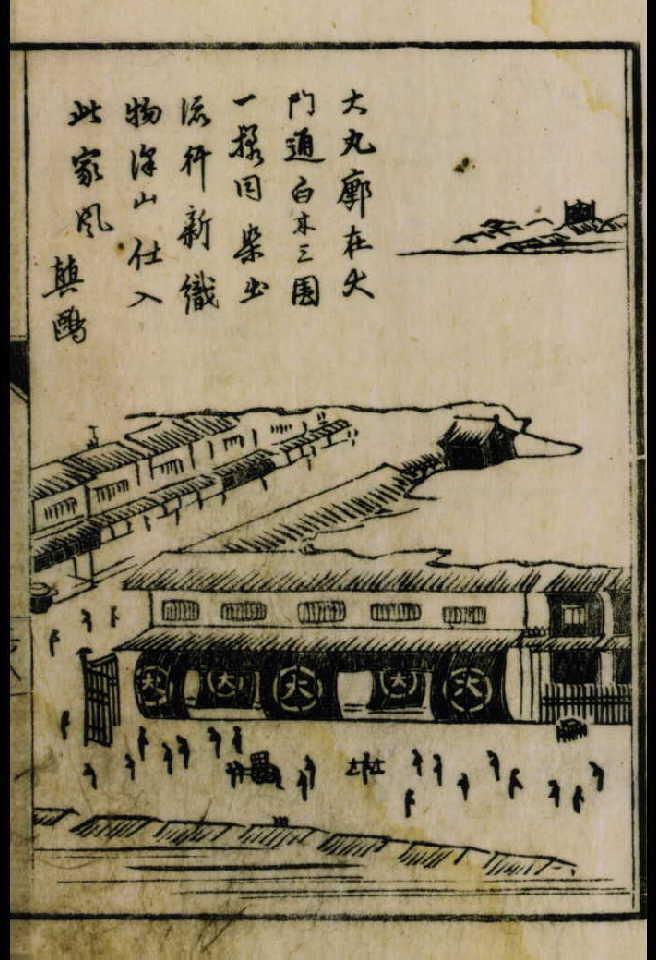 大丸廓在大
門通白木三圍
一様同染出
流行新織
物澤山仕入
此家風
大
大
大
大
大